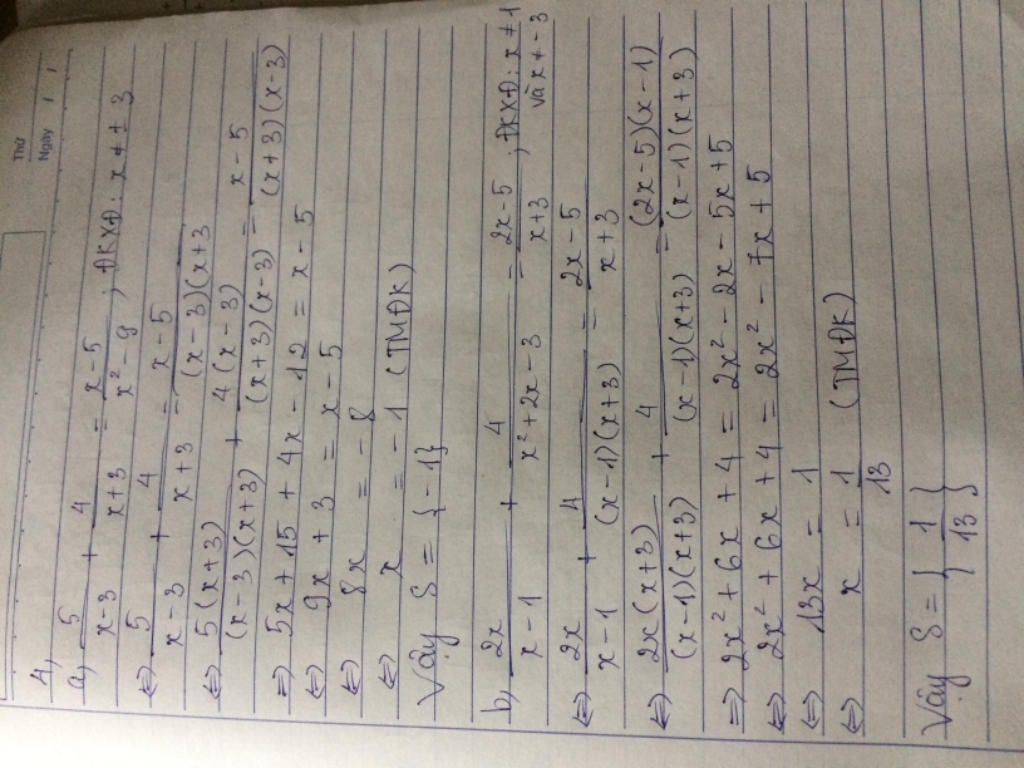 Thứ
Ngày / /
4,
a, 5/(x-3) + 4/(x+3) = (x-5)/(x²-9) ; ĐKXĐ: x ≠ ± 3
⇔ 5/(x-3) + 4/(x+3) = (x-5)/((x-3)(x+3)
⇔ 5(x+3)/((x-3)(x+3)) + 4(x-3)/((x+3)(x-3)) = (x-5)/((x+3)(x-3))
⇒ 5x + 15 + 4x - 12 = x - 5
⇔ 9x + 3 = x - 5
⇔ 8x = - 8
⇔ x = - 1 (TMĐK)
Vậy S = { - 1}
b, 2x/(x-1) + 4/(x²+2x-3) = (2x-5)/(x+3) ; ĐKXĐ: x ≠ 1
và x ≠ - 3
⇔ 2x/(x-1) + 4/((x-1)(x+3)) = (2x-5)/(x+3)
⇔ 2x(x+3)/((x-1)(x+3)) + 4/((x-1)(x+3)) = (2x-5)(x-1)/((x-1)(x+3))
⇒ 2x² + 6x + 4 = 2x² - 2x - 5x + 5
⇔ 2x² + 6x + 4 = 2x² - 7x + 5
⇔ 13x = 1
⇔ x = 1/13 (TMĐK)
Vậy S = { 1/13 }